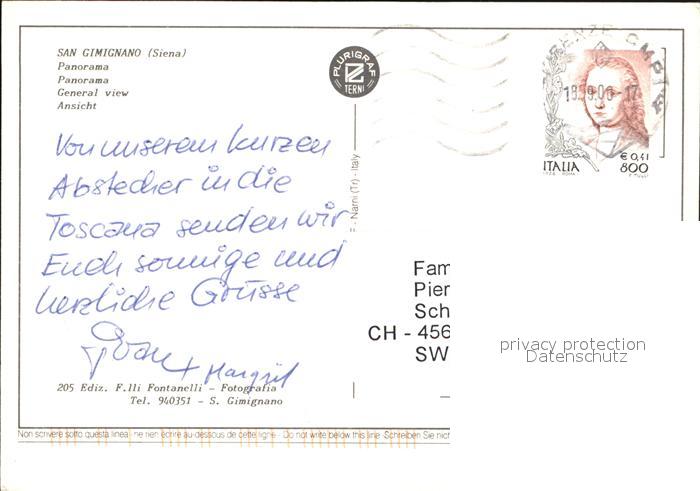 SAN GIMIGNANO (Siena)
Panorama
Panorama
General view
Ansicht
PLURIGRAF
TERNI
FIRENZE CMP
18.9.00-17
ITALIA
€ 0,41
800
Von unserem kurzen
Abstecher in die
Toscana senden wir
Euch sonnige und
herzliche Grüsse
+ Margrit
- Narni (Tr) - Italy
Fam
Pier
Sch
CH - 456
SW
privacy protection
Datenschutz
205 Ediz. F.lli Fontanelli - Fotografia
Tel. 940351 - S. Gimignano
Non scrivere sotto questa linea - ne rien écrire au-dessous de cette ligne - Do not write below this line - Schreiben Sie nich